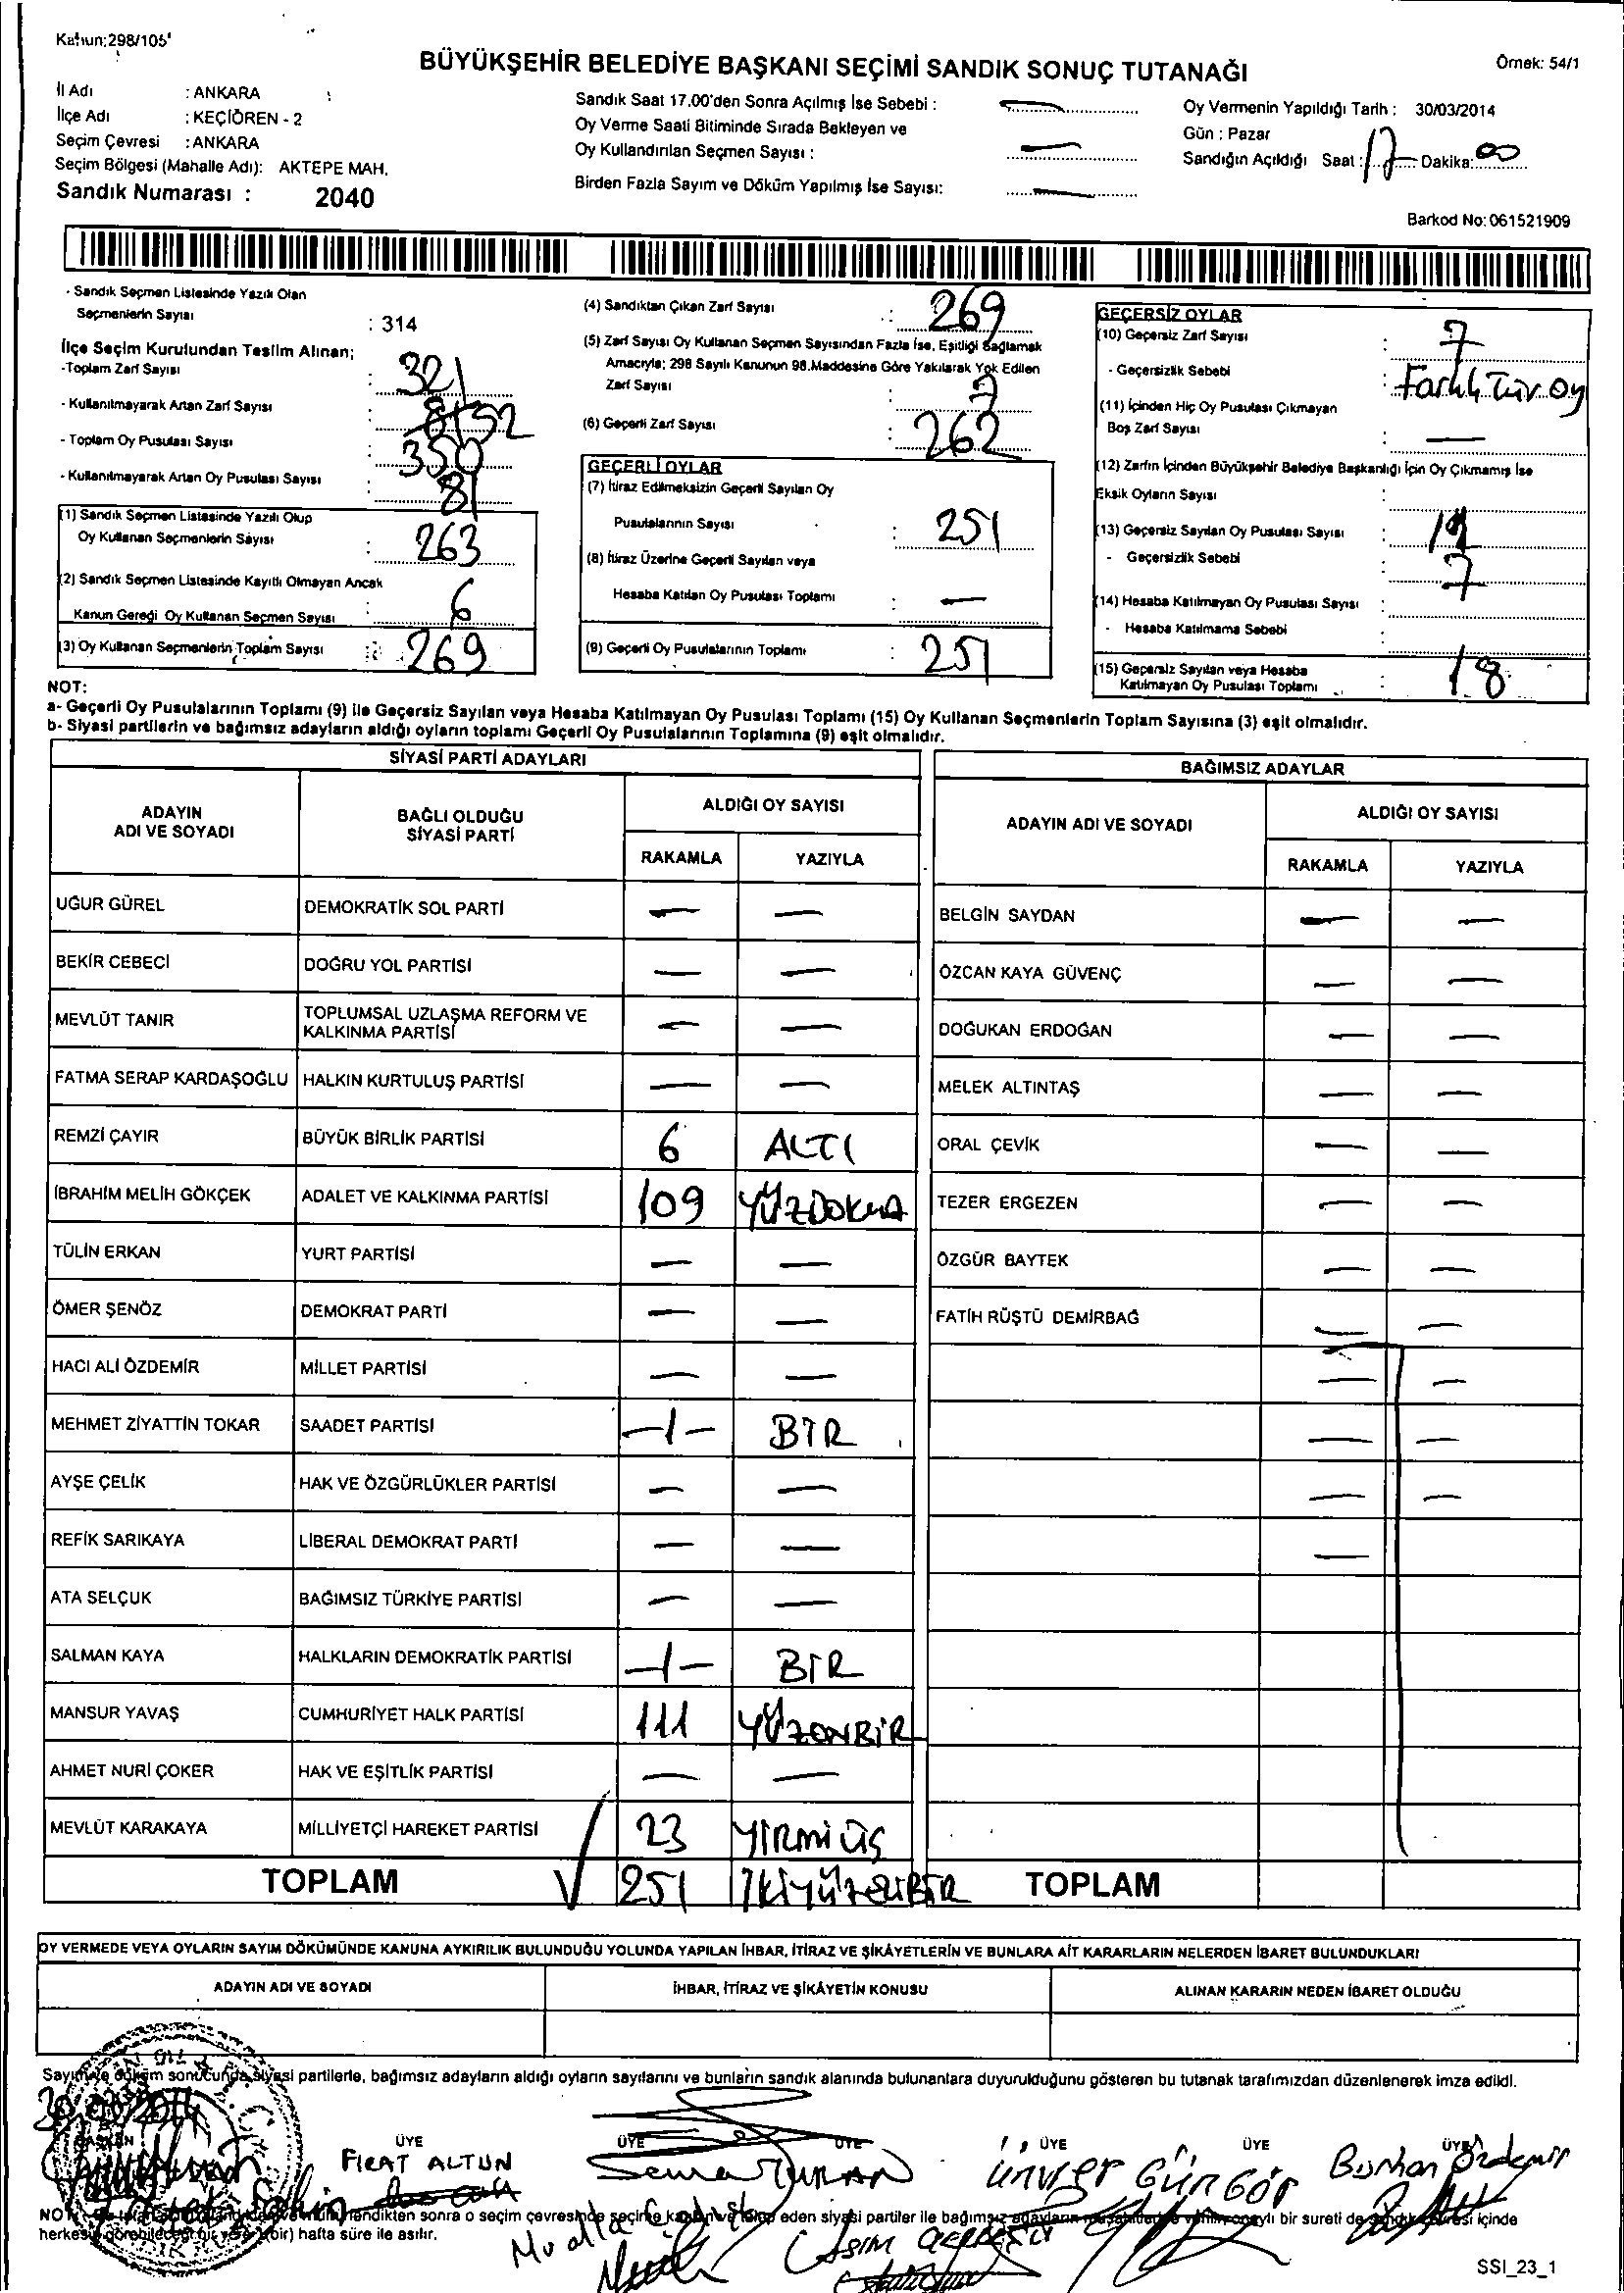 Kanun:298/105
BÜYÜKŞEHİR BELEDİYE BAŞKANI SEÇİMİ SANDIK SONUÇ TUTANAĞI
Örnek: 54/1
İl Adı : ANKARA
İlçe Adı : KEÇİÖREN - 2
Seçim Çevresi : ANKARA
Seçim Bölgesi (Mahalle Adı): AKTEPE MAH.
Sandık Numarası : 2040
Sandık Saat 17.00'den Sonra Açılmış İse Sebebi : —
Oy Verme Saati Bitiminde Sırada Bekleyen ve
Oy Kullandırılan Seçmen Sayısı : —
Birden Fazla Sayım ve Döküm Yapılmış İse Sayısı: —
Oy Vermenin Yapıldığı Tarih : 30/03/2014
Gün : Pazar
Sandığın Açıldığı Saat : 17 Dakika: 00
Barkod No: 061521909
- Sandık Seçmen Listesinde Yazılı Olan
Seçmenlerin Sayısı : 314
İlçe Seçim Kurulundan Teslim Alınan;
-Toplam Zarf Sayısı : 321
- Kullanılmayarak Artan Zarf Sayısı : 52
- Toplam Oy Pusulası Sayısı : 350
- Kullanılmayarak Artan Oy Pusulası Sayısı : 81
(1) Sandık Seçmen Listesinde Yazılı Olup
Oy Kullanan Seçmenlerin Sayısı : 263
(2) Sandık Seçmen Listesinde Kayıtlı Olmayan Ancak
Kanun Gereği Oy Kullanan Seçmen Sayısı : 6
(3) Oy Kullanan Seçmenlerin Toplam Sayısı : 269
(4) Sandıktan Çıkan Zarf Sayısı : 269
(5) Zarf Sayısı Oy Kullanan Seçmen Sayısından Fazla İse, Eşitliği Sağlamak
Amacıyla; 298 Sayılı Kanunun 98.Maddesine Göre Yakılarak Yok Edilen
Zarf Sayısı : 7
(6) Geçerli Zarf Sayısı : 262
GEÇERLİ OYLAR
(7) İtiraz Edilmeksizin Geçerli Sayılan Oy
Pusulalarının Sayısı : 251
(8) İtiraz Üzerine Geçerli Sayılan veya
Hesaba Katılan Oy Pusulası Toplamı : —
(9) Geçerli Oy Pusulalarının Toplamı : 251
GEÇERSİZ OYLAR
(10) Geçersiz Zarf Sayısı : 7
- Geçersizlik Sebebi : Farklı Tür oy
(11) İçinden Hiç Oy Pusulası Çıkmayan
Boş Zarf Sayısı : —
(12) Zarfın İçinden Büyükşehir Belediye Başkanlığı İçin Oy Çıkmamış İse
Eksik Oyların Sayısı :
(13) Geçersiz Sayılan Oy Pusulası Sayısı :
- Geçersizlik Sebebi : 7
(14) Hesaba Katılmayan Oy Pusulası Sayısı :
- Hesaba Katılmama Sebebi :
(15) Geçersiz Sayılan veya Hesaba
Katılmayan Oy Pusulası Toplamı : 18
NOT:
a- Geçerli Oy Pusulalarının Toplamı (9) ile Geçersiz Sayılan veya Hesaba Katılmayan Oy Pusulası Toplamı (15) Oy Kullanan Seçmenlerin Toplam Sayısına (3) eşit olmalıdır.
b- Siyasi partilerin ve bağımsız adayların aldığı oyların toplamı Geçerli Oy Pusulalarının Toplamına (9) eşit olmalıdır.
SİYASİ PARTİ ADAYLARI
ADAYIN ADI VE SOYADI
BAĞLI OLDUĞU SİYASİ PARTİ
ALDIĞI OY SAYISI
RAKAMLA YAZIYLA
UĞUR GÜREL DEMOKRATİK SOL PARTİ — —
BEKİR CEBECİ DOĞRU YOL PARTİSİ — —
MEVLÜT TANIR TOPLUMSAL UZLAŞMA REFORM VE KALKINMA PARTİSİ — —
FATMA SERAP KARDAŞOĞLU HALKIN KURTULUŞ PARTİSİ — —
REMZİ ÇAYIR BÜYÜK BİRLİK PARTİSİ 6 ALTI
İBRAHİM MELİH GÖKÇEK ADALET VE KALKINMA PARTİSİ 109
TÜLİN ERKAN YURT PARTİSİ — —
ÖMER ŞENÖZ DEMOKRAT PARTİ — —
HACI ALİ ÖZDEMİR MİLLET PARTİSİ — —
MEHMET ZİYATTİN TOKAR SAADET PARTİSİ -1- BİR
AYŞE ÇELİK HAK VE ÖZGÜRLÜKLER PARTİSİ — —
REFİK SARIKAYA LİBERAL DEMOKRAT PARTİ — —
ATA SELÇUK BAĞIMSIZ TÜRKİYE PARTİSİ — —
SALMAN KAYA HALKLARIN DEMOKRATİK PARTİSİ -1- BİR
MANSUR YAVAŞ CUMHURİYET HALK PARTİSİ 111 YÜZONBİR
AHMET NURİ ÇOKER HAK VE EŞİTLİK PARTİSİ — —
MEVLÜT KARAKAYA MİLLİYETÇİ HAREKET PARTİSİ 23 YİRMİ ÜÇ
TOPLAM 251 İKİYÜZELLİBİR
BAĞIMSIZ ADAYLAR
ADAYIN ADI VE SOYADI
ALDIĞI OY SAYISI
RAKAMLA YAZIYLA
BELGİN SAYDAN — —
ÖZCAN KAYA GÜVENÇ — —
DOĞUKAN ERDOĞAN — —
MELEK ALTINTAŞ — —
ORAL ÇEVİK — —
TEZER ERGEZEN — —
ÖZGÜR BAYTEK — —
FATİH RÜŞTÜ DEMİRBAĞ — —
TOPLAM
OY VERMEDE VEYA OYLARIN SAYIM DÖKÜMÜNDE KANUNA AYKIRILIK BULUNDUĞU YOLUNDA YAPILAN İHBAR, İTİRAZ VE ŞİKÂYETLERİN VE BUNLARA AİT KARARLARIN NELERDEN İBARET BULUNDUKLARI
ADAYIN ADI VE SOYADI
İHBAR, İTİRAZ VE ŞİKÂYETİN KONUSU
ALINAN KARARIN NEDEN İBARET OLDUĞU
Sayım ve döküm sonucunda siyasi partilerle, bağımsız adayların aldığı oyların sayılarını ve bunların sandık alanında bulunanlara duyurulduğunu gösteren bu tutanak tarafımızdan düzenlenerek imza edildi.
BAŞKAN ÜYE ÜYE ÜYE ÜYE ÜYE ÜYE
FIRAT ALTUN
Sema TURAN
ünver Güngör
Burhan Özdemir
NOT: sonra o seçim çevresinde seçime eden siyasi partiler ile bağımsız bir sureti de içinde
herkesin görebileceği bir yere (bir) hafta süre ile asılır.
Asım
SSI_23_1